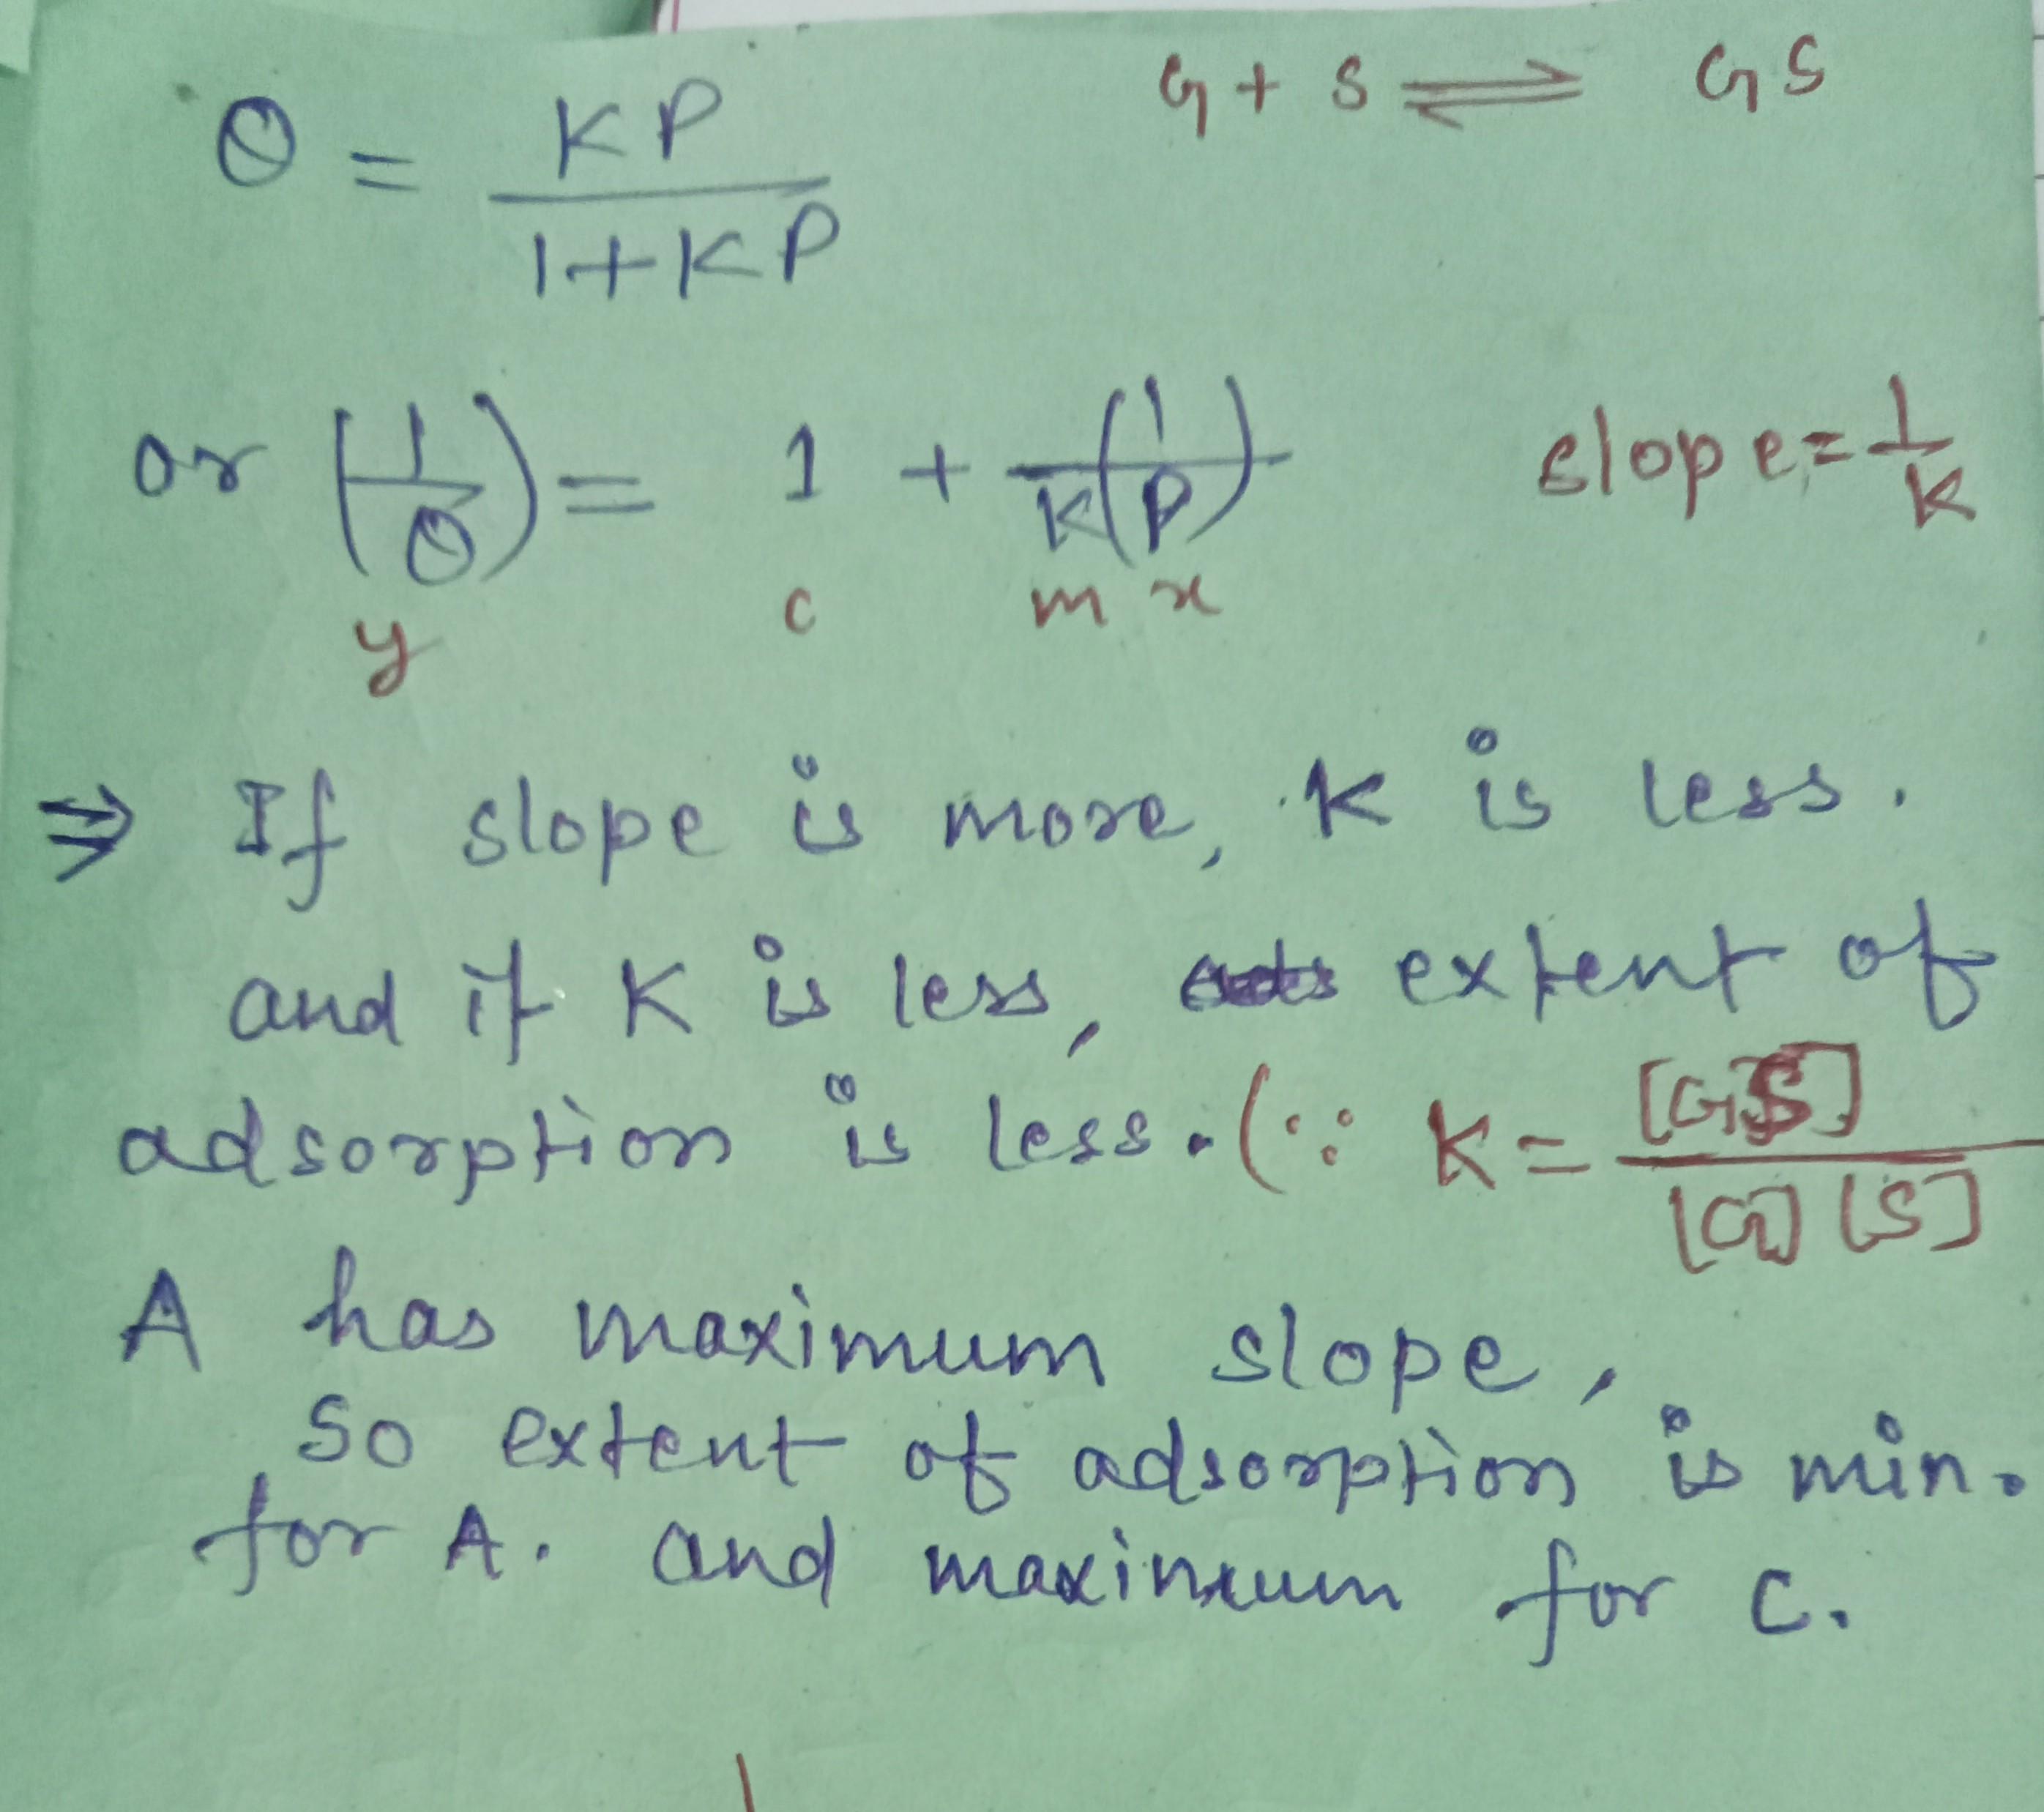 θ = KP / 1+KP    G + S ⇌ GS
or (1/θ) = 1 + 1/K (1/P)    slope = 1/K
y    c    m x
⇒ If slope is more, K is less.
and if K is less, extent of
adsorption is less. (∵ K = [GS] / [G] [S]
A has maximum slope,
so extent of adsorption is min.
for A. and maximum for C.